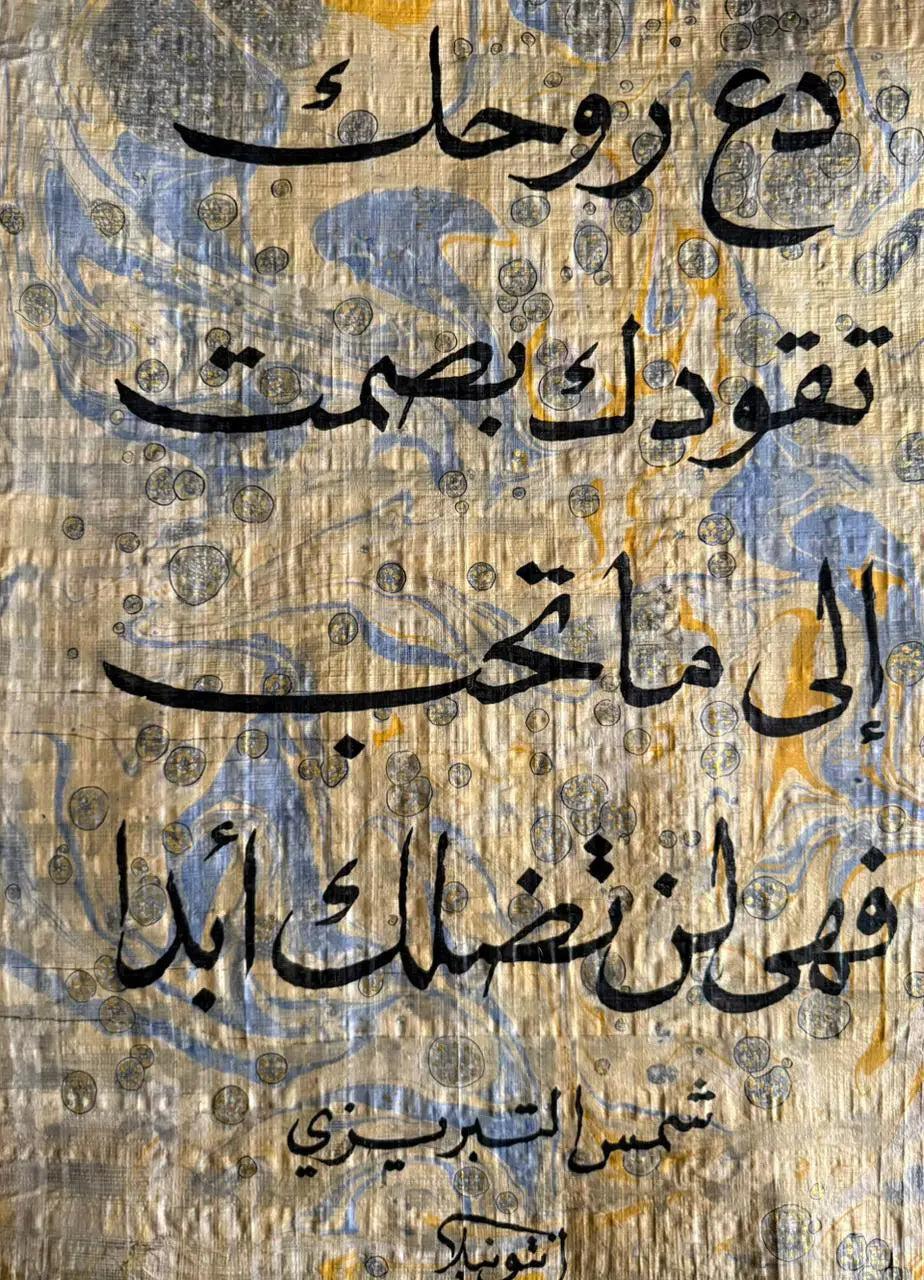 دع روحك
تقودك بصمت
إلى ما تحب
فهى لن تضلك أبدا
شمس التبريزي
انتونيلا